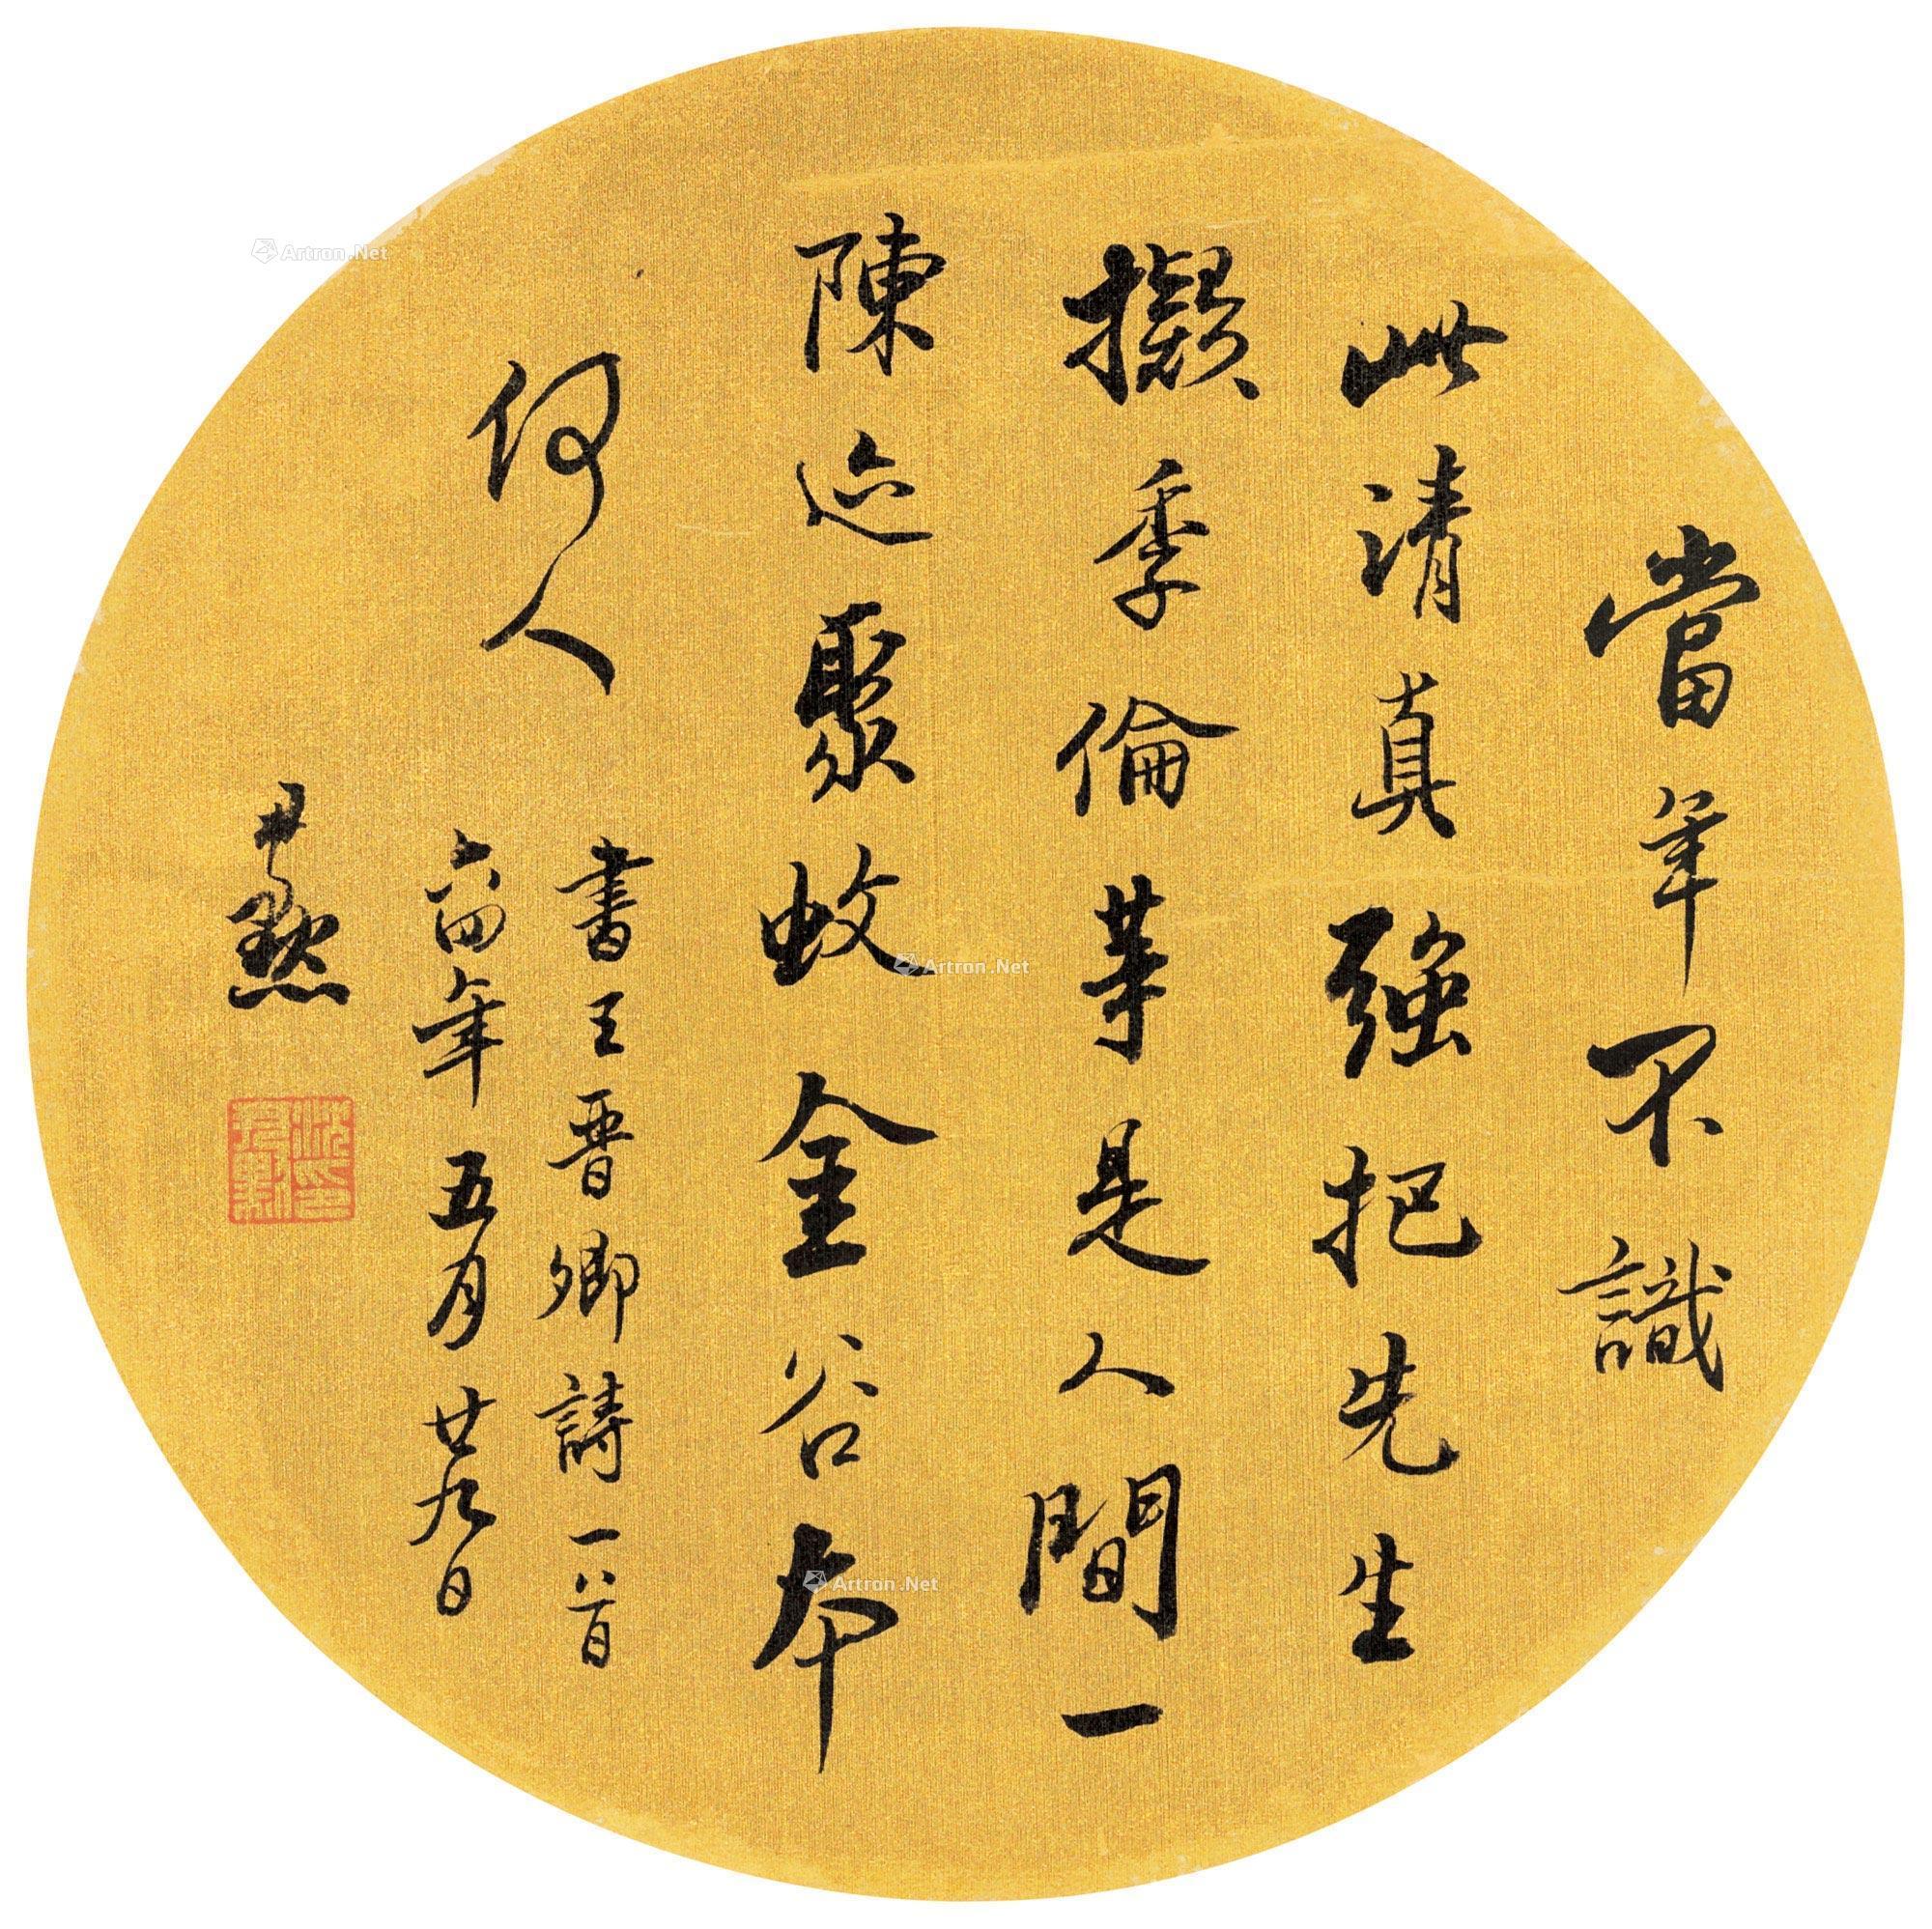 當年不識
此清真強把先生
擬季倫等是人間一
陳迹聚蚊金谷本
何人
書王晉卿詩一首
六四年五月廿九日
尹默
沈尹默印
Artron.Net
Artron.Net
Artron.Net